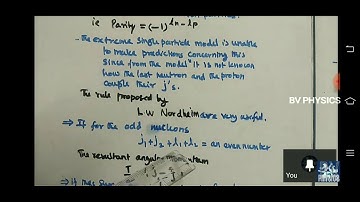 ie Parity = (-1)^ln-lp
- The extreme single particle model is unable
to make predictions concerning this
since from the model it is not known
how the last neutron and the proton
couple their j's.
The rule proposed by
L.W Nordheim are very useful.
⇒ If for the odd nucleons
j1+j2+l1+l2 = an even number
The resultant angular momentum
I
BV PHYSICS
You